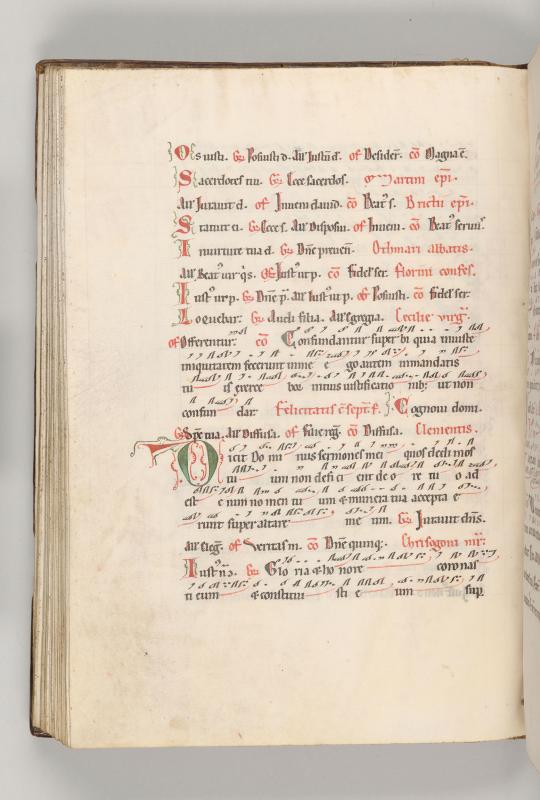 Os iusti. Gr. Posuisti d. Aỻ Iustū d. Of Desider. Cō Magna ē.
Sacerdotes tui. Gr. Ecce sacerdos. Martini epi.
Aỻ Iurauit d. Of Inueni dauid. Cō Beat' s. Brictii epi.
Statuit ei. Gr. Ecce s. Aỻ Disposui. Of Inueni. Co Beat' seruus.
In uirtute tua d. Gr. Dn̄e preuen̄. Othmari abbatis.
Aỻ Beat' uir q's. Of Iust' ut p. Cō Fidel' ser. Florini confes.
Iust' ut p. Gr. Dn̄e p. Aỻ Iust' ut p. Of Posuisti. Cō Fidel' ser.
Loquebar. Gr. Audi filia. Aỻ Egregia. Cecilie virg.
Of Offerentur. Cō Confundantur superbi quia iniuste
iniquitatem fecerunt in me ego autem in mandatis
tuis exercebor in tuis iustificationib; ut non
confundar. Felicitatis Cognoui domi.
Gr. Spē tua. Aỻ Diffusa. Of Filie reg. Cō Diffusa. Clementis.
Dicit Do mi nus sermones mei quos dedi in os
tu um non defi ci ent de o re tu o ad
est e nim no men tu um & munera tua accepta e
runt super altare me um. Gr. Iurauit dn̄s.
Aỻ Of Veritas m. Cō Dn̄e quinq;. Chrisogoni mr.
Iust' n̄ Gr. Glo ria & ho nore coronas
ti eum & constitui sti e um sup.